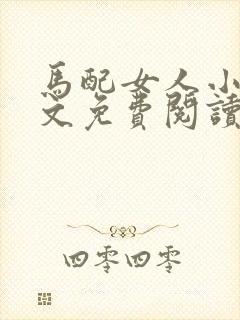 馬配女人小
文免費閱讀
四零四零